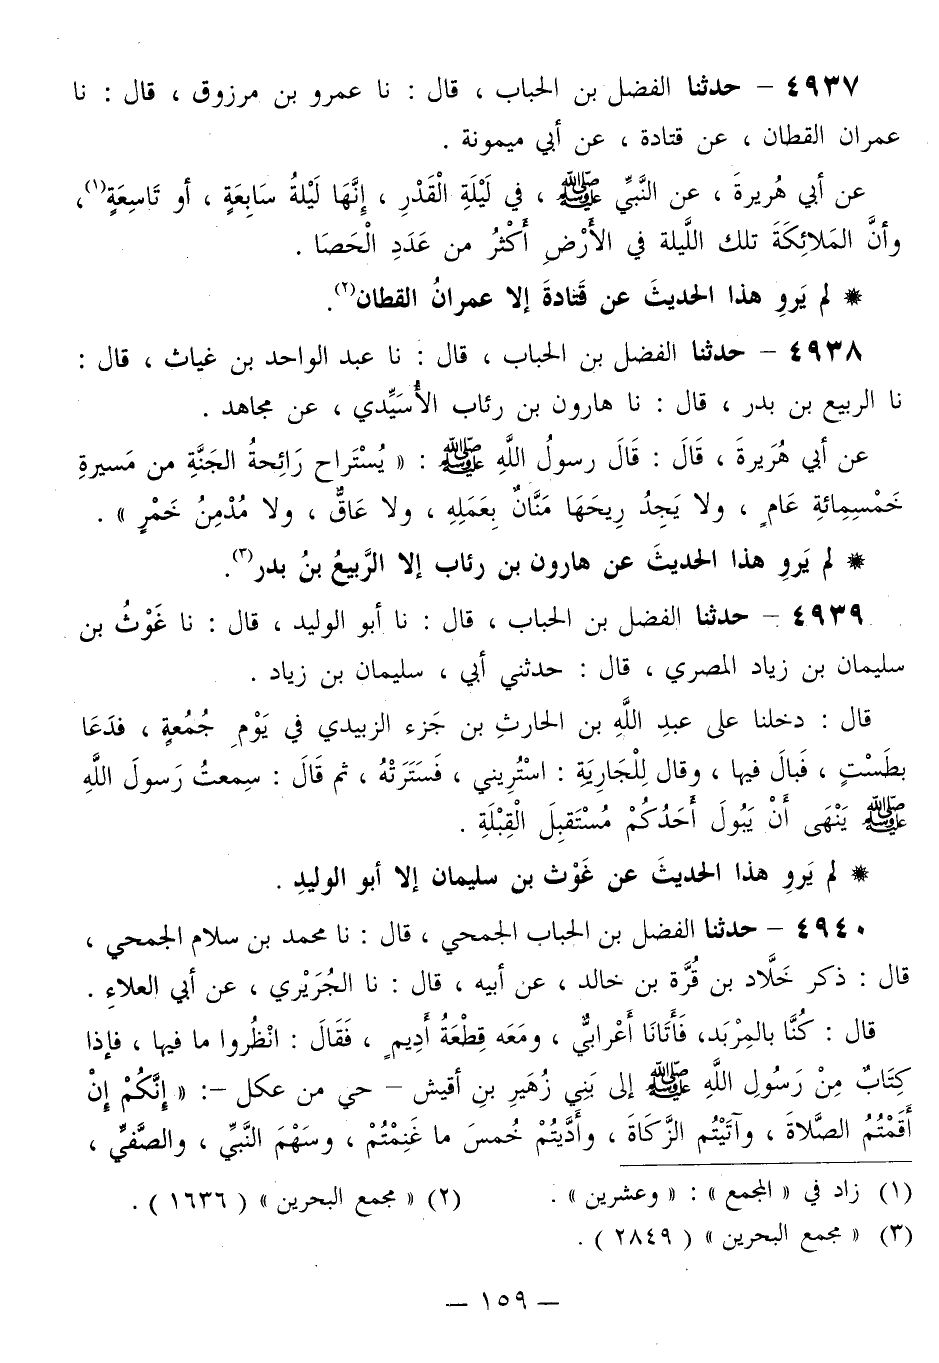 ٤٩٣٧ – حدثنا الفضل بن الحباب ، قال : نا عمرو بن مرزوق ، قال : نا
عمران القطان ، عن قتادة ، عن أبي ميمونة .
عن أبي هُريرةَ ، عن النَّبيِّ ﷺ ، في لَيْلَةِ الْقَدْرِ ، إِنَّهَا لَيْلةُ سَابِعَةٍ ، أو تَاسِعَةٍ(١)،
وأنَّ المَلائِكَةَ تلك اللَّيلة في الأَرْضِ أَكْثَرُ من عَدَدِ الْحَصَا .
* لم يَروِ هذا الحديثَ عن قَتادةَ إلا عمرانُ القطان(٢).
٤٩٣٨ – حدثنا الفضل بن الحباب ، قال : نا عبد الواحد بن غياث ، قال :
نا الربيع بن بدر ، قال : نا هارون بن رئاب الأُسَيِّدي ، عن مجاهد .
عن أبي هُرَيرةَ ، قَالَ : قَالَ رسولُ اللَّهِ ﷺ : « يُسْتَراح رَائِحةُ الجَنَّةِ من مَسيرةِ
خَمْسِمِائةِ عَامٍ ، ولا يَجِدُ رِيحَهَا مَنَّانٌ بِعَمَلِهِ ، ولا عَاقٌّ ، ولا مُدْمِنُ خَمْرٍ » .
* لم يَروِ هذا الحديثَ عن هارون بن رئاب إلا الرَّبيعُ بنُ بدر(٣).
٤٩٣٩ – حدثنا الفضل بن الحباب ، قال : نا أبو الوليد ، قال : نا غَوْثُ بن
سليمان بن زياد المصري ، قال : حدثني أبي ، سليمان بن زياد .
قال : دخلنا على عبدِ اللَّهِ بن الحارثِ بن جَزء الزبيدي في يَوْمِ جُمُعةٍ ، فدَعَا
بطَسْتٍ ، فَبالَ فيها ، وقال لِلْجَارِيَةِ : اسْتُريني ، فَسَتَرَتْهُ ، ثم قَالَ : سِمعتُ رَسولَ اللَّه
ﷺ يَنْهَى أَنْ يَبُولَ أَحَدُكُمْ مُسْتَقبِلَ الْقِبْلَةِ .
* لم يَروِ هذا الحديثَ عن غَوْث بن سليمان إلا أبو الوليدِ .
٤٩٤٠ – حدثنا الفضل بن الحباب الجمحي ، قال : نا محمد بن سلام الجمحي ،
قال : ذكر خَلَّاد بن قُرَّة بن خالد ، عن أبيه ، قال : نا الجُرَيْري ، عن أبي العلاءِ .
قال : كُنَّا بالمِرْبَد، فَأَتَانَا أَعْرابيٌّ ، ومَعَه قِطْعَةُ أَدِيمٍ ، فَقَالَ : انْظُروا ما فيها ، فإذا
كِتَابٌ مِنْ رَسُولِ اللَّهِ ﷺ إلى بَنِي زُهَيرِ بنِ أقيش – حي من عكل –: « إِنَّكُمْ إِنْ
أَقَمْتُمُ الصَّلاةَ ، وآتَيْتُم الزَّكَاةَ ، وأَدَّيتُمْ خُمسَ ما غَنِمْتُمْ ، وسَهْمَ النَّبيِّ ، والصَّفيِّ ،
(١) زاد في « المجمع » : « وعشرين » . (٢) « مجمع البحرين » ( ١٦٣٦ ) .
(٣) « مجمع البحرين » ( ٢٨٤٩ ) .
– ١٥٩ –